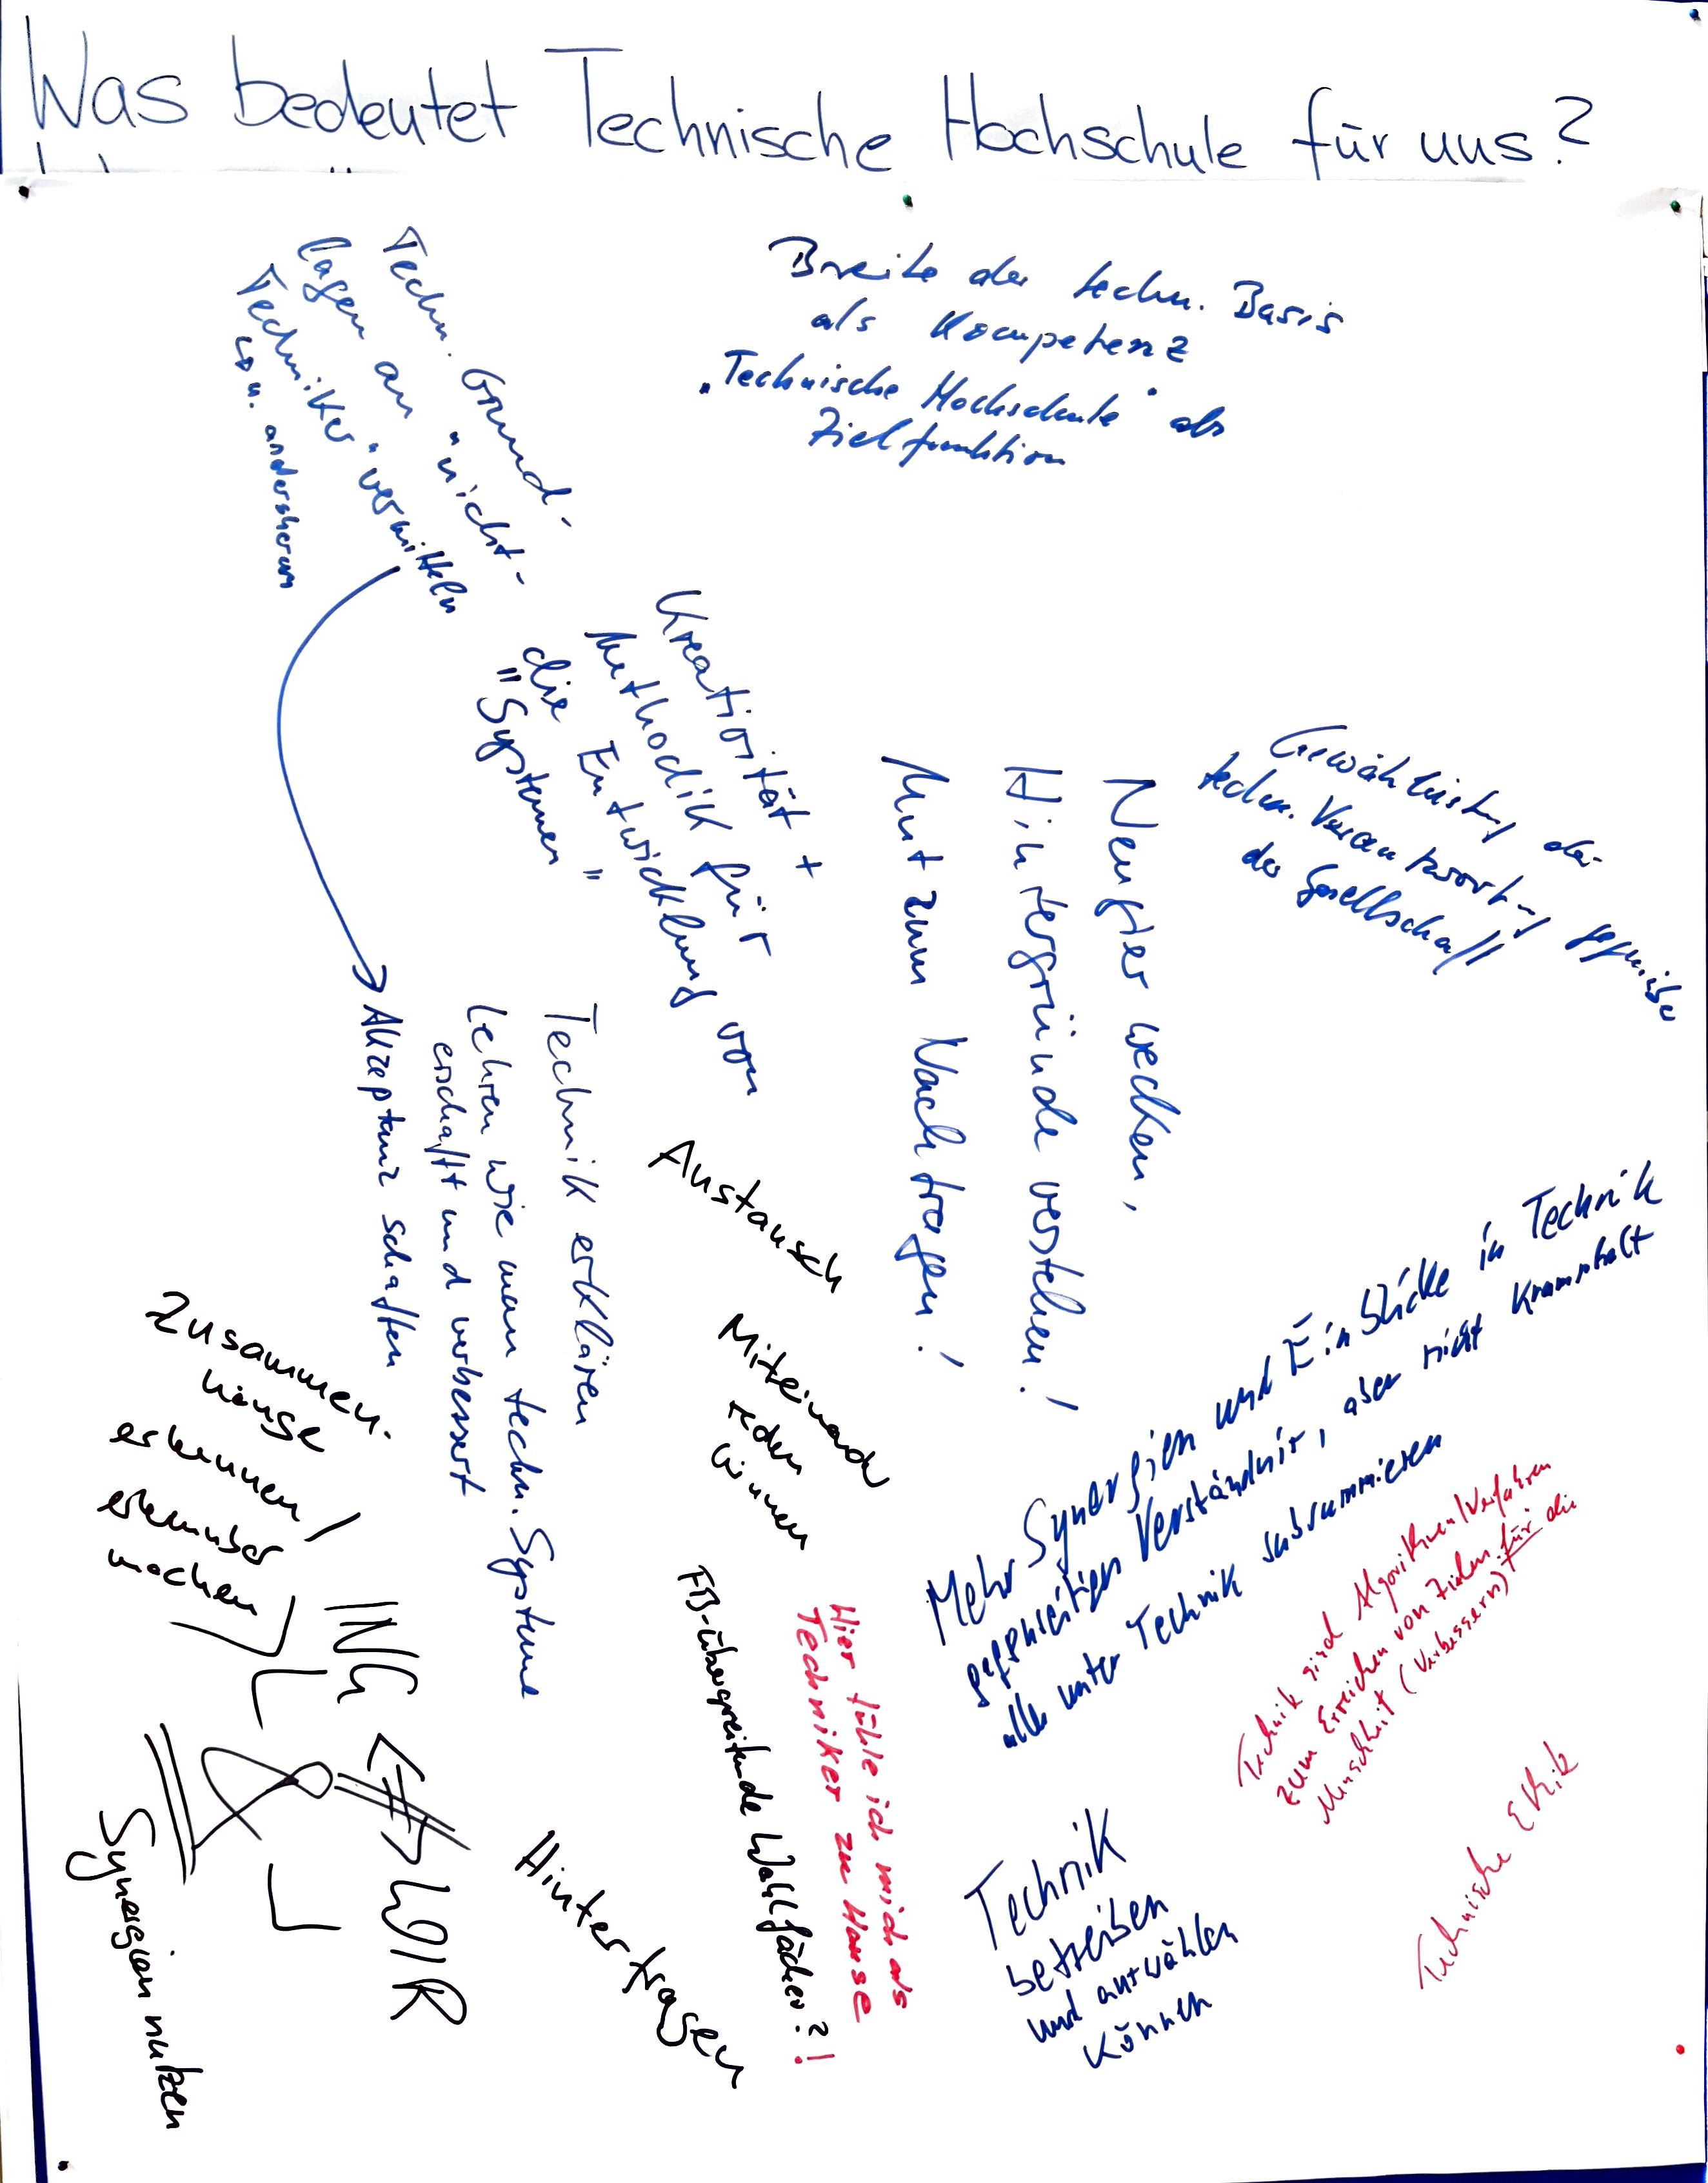 Was bedeutet Technische Hochschule für uns?
Breite der techn. Basis
als Kompetenz
"Technische Hochschule" als
Zielfunktion
Techn. Grund-
lagen an "nicht-
Techniker" vermitteln
u. andersherum
Akzeptanz schaffen
Kreativität +
Methodik für
die Entwicklung von
"Systemen"
Gewährleistung der
techn. Verantwortung gegenüber
der Gesellschaft
Neugier wecken,
Hintergründe verstehen!
Mut zum Nachfragen!
Technik erklären
Lehren wie man techn. Systeme
erschafft und verbessert
Austausch
Miteinander
reden
können
Mehr Synergien und Einblicke in Technik
gegenseitiges Verständnis, aber nicht krampfhaft
alles unter Technik subsummieren
Technik sind Algorithmen/Verfahren
zum Erreichen von Zielen für die
Menschheit (Verbessern)
Technische Ethik
Zusammen-
hänge
erkennen /
erkennbar
machen
ING
<#> WIR
&
Synergien nutzen
Hinterfragen
FB-übergreifende Wahlfächer?!
Hier fühle ich mich als
Techniker zu Hause
Technik
betreiben
und auswählen
können